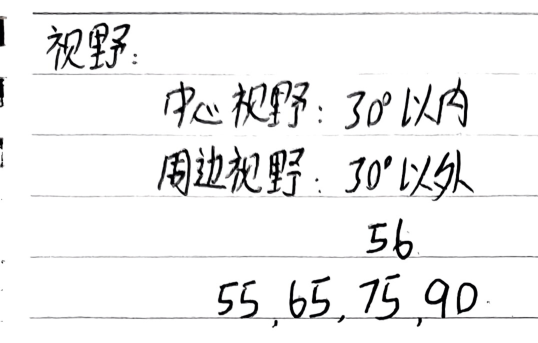 视野:
中心视野: 30°以内
周边视野: 30°以外
56
55,65,75,90.